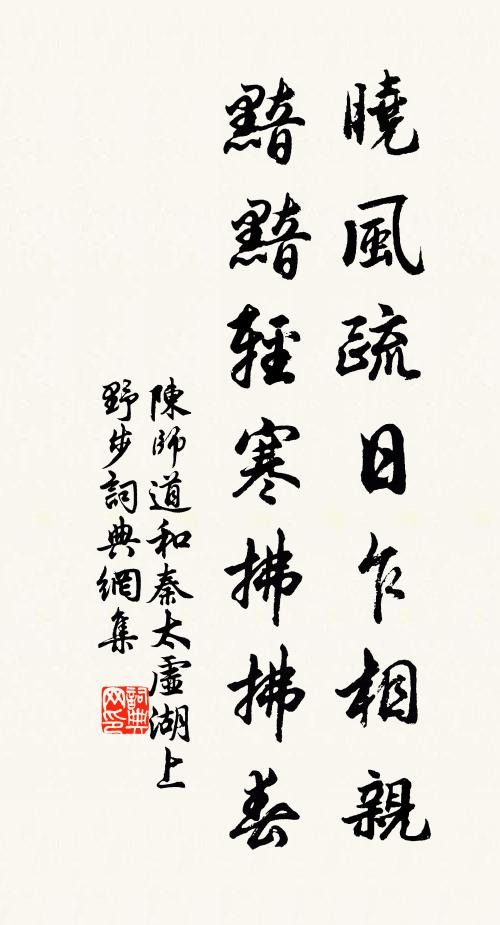 曉風疏日乍相親
黯黯輕寒拂拂春
陳師道和秦太虛湖上
野步詞典網集
詞典网印